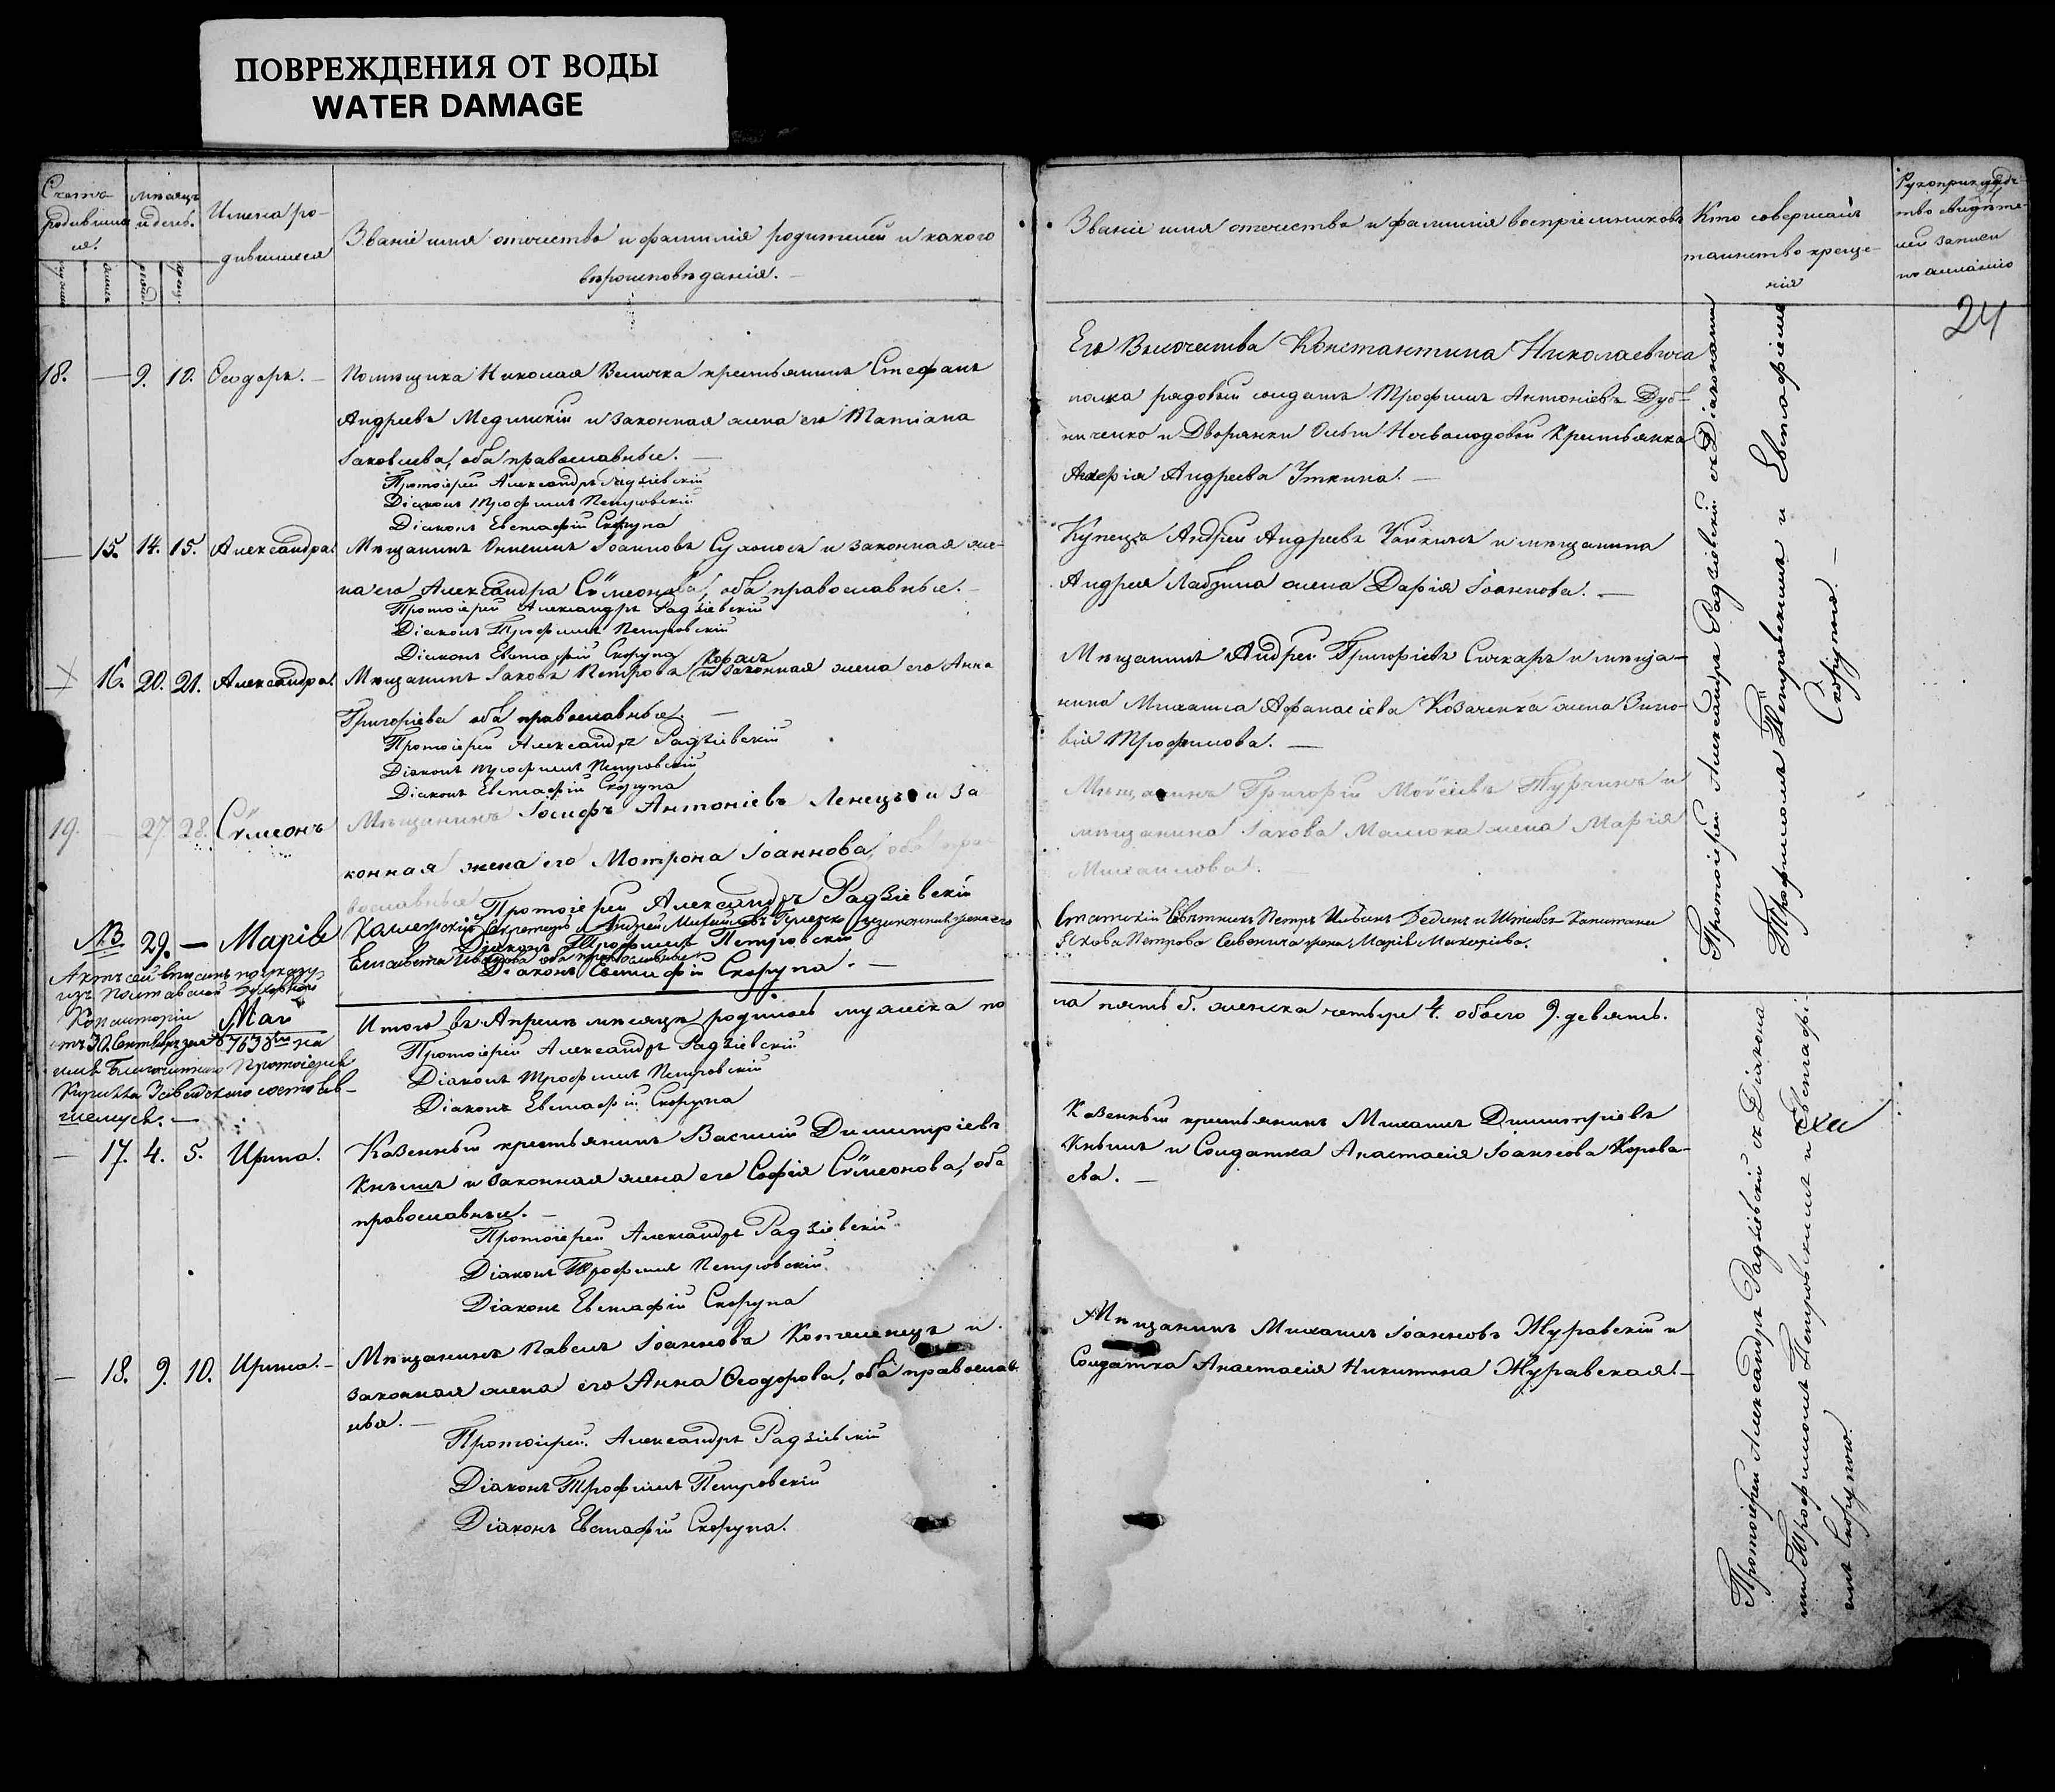 ПОВРЕЖДЕНИЯ ОТ ВОДЫ
WATER DAMAGE
Счетъ
родивших
ся.
Мѣсяцъ
и день.
Имена ро-
дившихся
Званіе имя отечество и фамилія родителей и какого
вѣроисповѣданія. —
18. — 9. 10. Ѳеодоръ. —
Помѣщика Николая Велички крестьянинъ Стефанъ
Андреевъ Мединскій и законная жена его Татіана
Іаковлева, оба православные. —
Протоіерей Александръ Радзіевскій
Діаконъ Трофимъ Петровскій
Діаконъ Евстафій Скорупа
— 15. 14. 15. Александра.
Мѣщанинъ Онисимъ Іоанновъ Сухоносъ и законная же-
на его Александра Сѵмеонова, оба православные. —
Протоіерей Александръ Радзіевскій
Діаконъ Трофимъ Петровскій
Діаконъ Евстафій Скорупа
— 16. 20. 21. Александра.
Мѣщанинъ Іаковъ Петровъ и законная жена его Анна
Григоріева оба православные. —
Протоіерей Александръ Радзіевскій
Діаконъ Трофимъ Петровскій
Діаконъ Евстафій Скорупа
19. — 27. 28. Сѵмеонъ
Мѣщанинъ Іосифъ Антоніевъ Ленецъ и за
конная жена его Мотрона Іоаннова, оба пра
вославные
Протоіерей Александръ Радзіевскій
Діаконъ Трофимъ Петровскій
Діаконъ Евстафій Скорупа. —
№3. 29. — Марія
Секретарь Андрей законная жена его
Елисавета Иванова оба православные
Актъ сей вписанъ по указу
изъ Полтавской Духовной
Консисторіи
отъ 30. Сентября за № 7638 на
имя Благочиннаго Протоіерея
Кирилла состояв-
шемуся. —
Итого въ Апрѣлѣ мѣсяцѣ родилось мужеска по
Протоіерей Александръ Радзіевскій
Діаконъ Трофимъ Петровскій
Діаконъ Евстафій Скорупа
Маій
— 17. 4. 5. Ирина.
Казенный крестьянинъ Василій Димитріевъ
Кнышъ и законная жена его Софія Сѵмеонова, оба
православные. —
Протоіерей Александръ Радзіевскій
Діаконъ Трофимъ Петровскій
Діаконъ Евстафій Скорупа
— 18. 9. 10. Ирина. —
Мѣщанинъ Павелъ Іоанновъ и
законная жена его Анна Ѳеодорова, оба православ
ные. —
Протоіерей Александръ Радзіевскій
Діаконъ Трофимъ Петровскій
Діаконъ Евстафій Скорупа.
Званіе имя отечество и фамилія воспріемниковъ
Кто совершалъ
таинство креще-
нія
Рукоприклад-
ство свидѣте-
лей записи
по желанію
24
Его Высочества Константина Николаевича
полка рядовый солдатъ Трофимъ Антоніевъ Дуб-
ниченко и Дворянки Ольги крестьянка
Андреева Уткина. —
Купецъ Андрей Андреевъ Чайкинъ и мѣщанина
Андрея Лабзина жена Дарія Іоаннова. —
Мѣщанинъ Андрей Григоріевъ Сичкарь и мѣща-
нина Михаила Афанасіева Козаченка жена Зино-
вія Трофимова. —
Мѣщанинъ Григорій Моѵсеевъ Турчинъ и
мѣщанина Іакова Малюка жена Марія
Михаилова. —
Статскій Совѣтникъ Петръ и Штабсъ-Капитана
Якова Петрова жена Марія Макаріева.
ла пять 5. женска четыре 4. обоего 9. девять.
Казенный крестьянинъ Михаилъ Димитріевъ
Кнышъ и Солдатка Анастасія Іоаннова Корова-
ева. —
Мѣщанинъ Михаилъ Іоанновъ Журавскій и
Солдатка Анастасія Никитина Журавская. —
Протоіерей Александръ Радзіевскій съ Діаконами
Трофимомъ Петровскимъ и Евстафіемъ
Скорупою. —
Протоіерей Александръ Радзіевскій съ Діакона
ми Трофимомъ Петровскимъ и Евстафі-
емъ Скорупою.